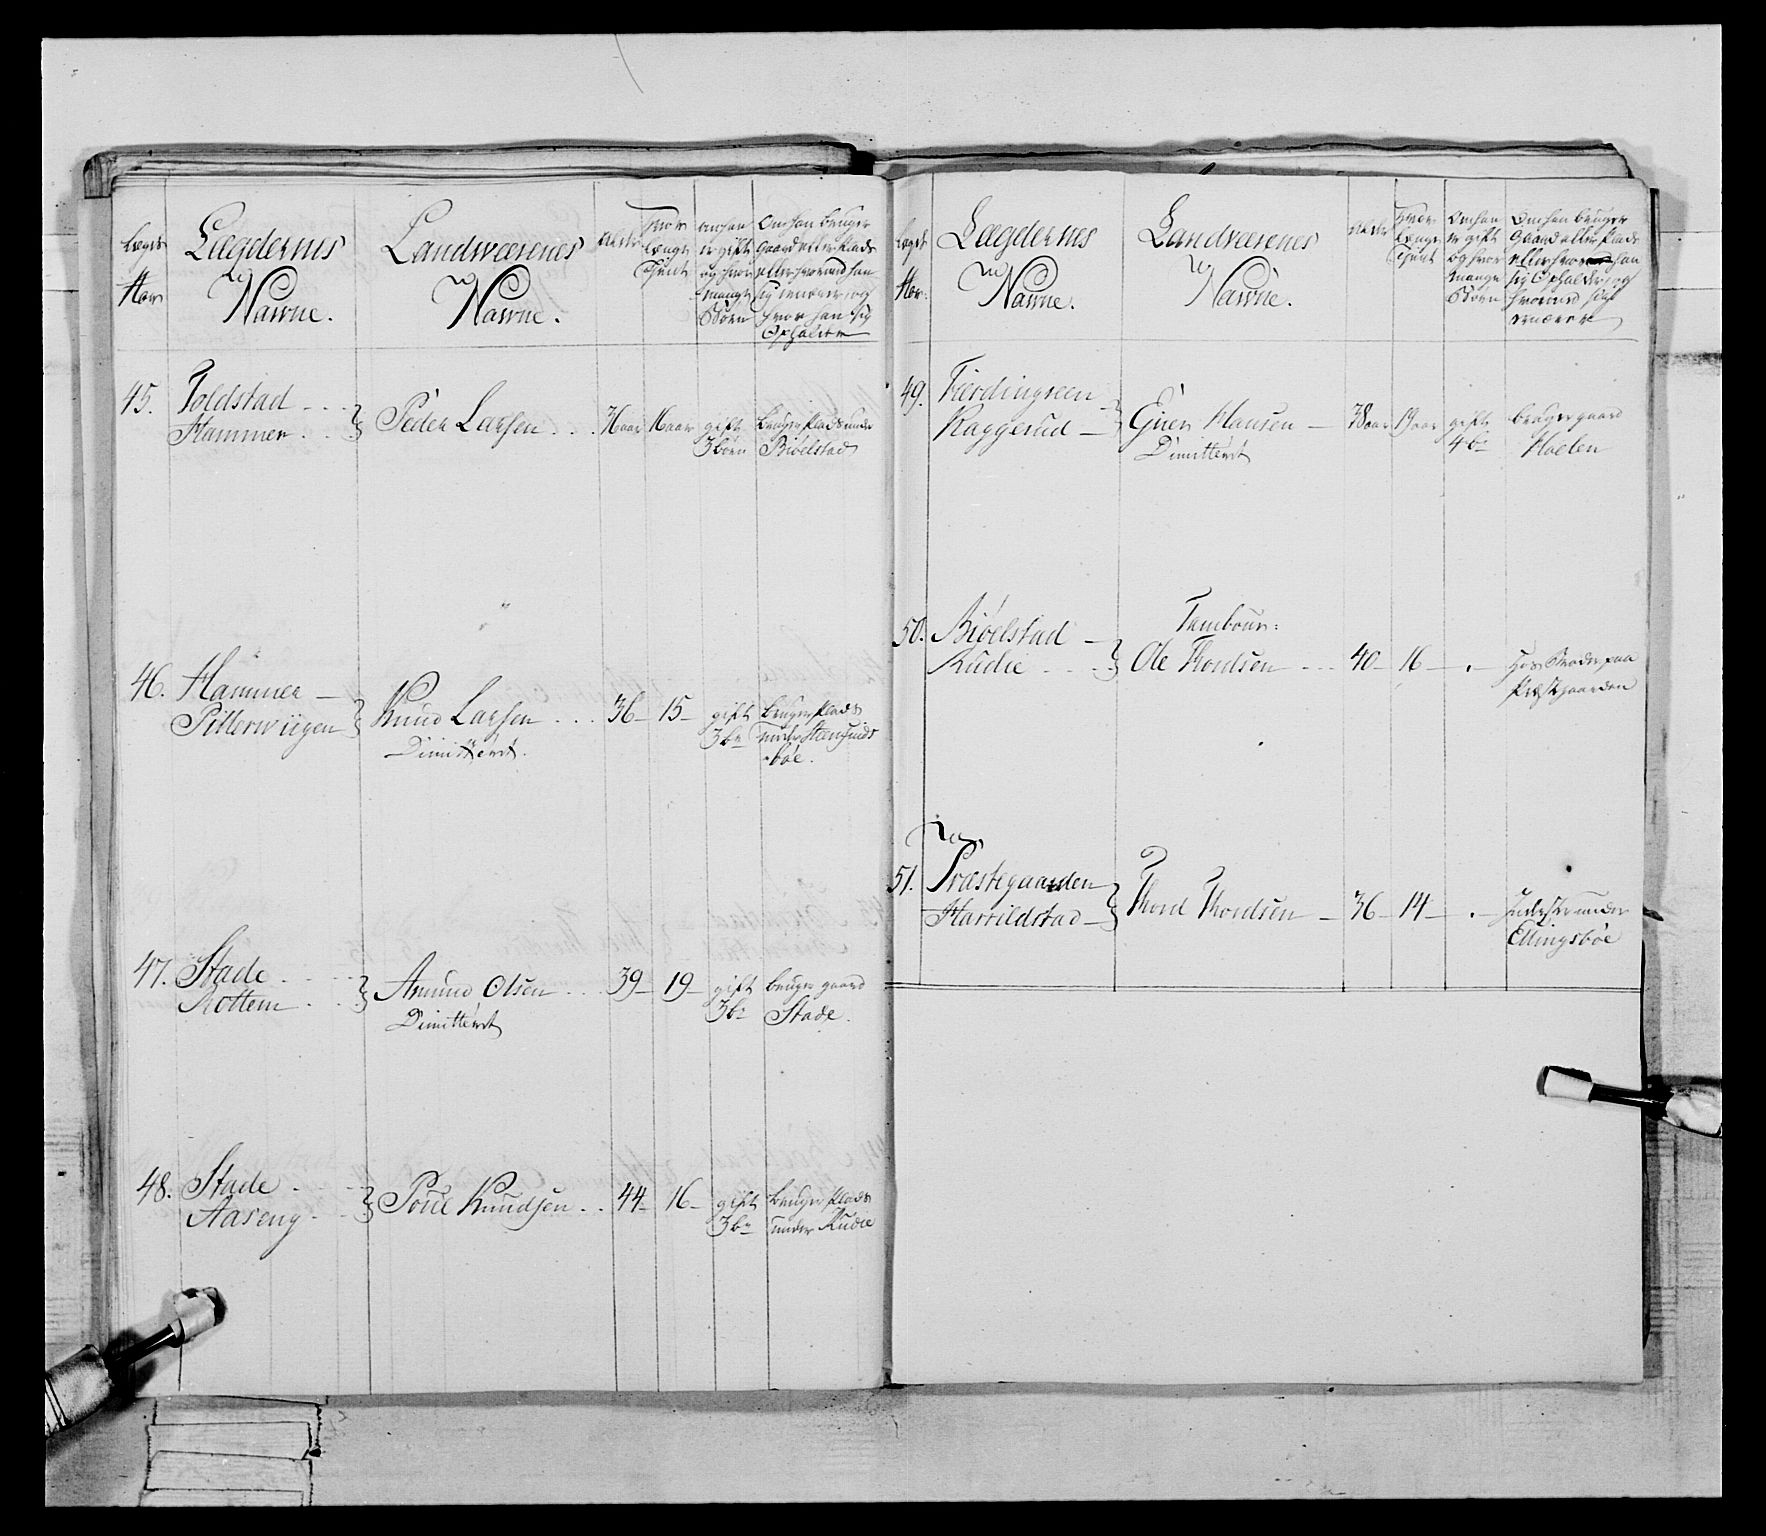 Lægdernes
Nafvne.
Landværenes
Nafvne.
Alder
Hvor
længe
Tjent
om han
er gift
og hvor
mange
Børn
Om han bruger
Gaard eller Plads
eller hvormed han
sig ernærer, og
hvor han sig
Opholder
45. Toldstad
Hammer
Peder Larsen
36 aar
16 aar
gift
3 børn
bruger Plads under
Biølstad
46. Hammer
Pillerviigen
Knud Larsen
Dimitteret.
36
15
gift
3 bn
bruger Plads
under
bøe.
47. Stade
Rottem
Amund Olsen
Dimitteret
39
19
gift
3 bn
bruger gaard
Stade.
48. Stade
Aaseng
Poul Knudsen
44
16
gift
3 bn
bruger Plads
under Rudie
Lægdernes
Nafvne.
Landværenes
Nafvne.
Alder
Hvor
længe
Tjent
Om han
er gift
og hvor
mange
Børn
Om han bruger
Gaard eller Plads
eller hvor han
sig Opholder, og
hvormed sig
ernærer
49. Fierdingreen
Raggerud
Hansen
Dimitteret
38 aar
19 aar
gift
4 bn
bruger gaard
Hoelen
50. Biølstad
Rudie
Tambour:
Ole Thordsen
40
16
hos Moder paa
Præstgaarden
51. Præstegaarden
Harrildstad
Thord Thordsen
36
14
Inderster under
Ellingsbøe